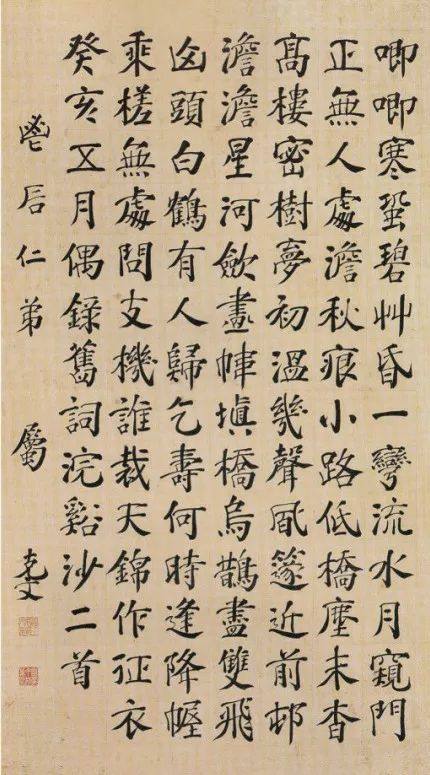 唧唧寒蛩碧艸昏一彎流水月窺門
正無人處澹秋痕小路低橋塵未杳
高樓密樹夢初溫幾聲風篴近前邨
澹澹星河斂畫幃塡橋烏鵲盡雙飛
頭白鶴有人歸乞壽何時逢降幄
乘槎無處問支機誰裁天錦作征衣
癸亥五月偶錄舊詞浣谿沙二首
仁弟 屬 克文